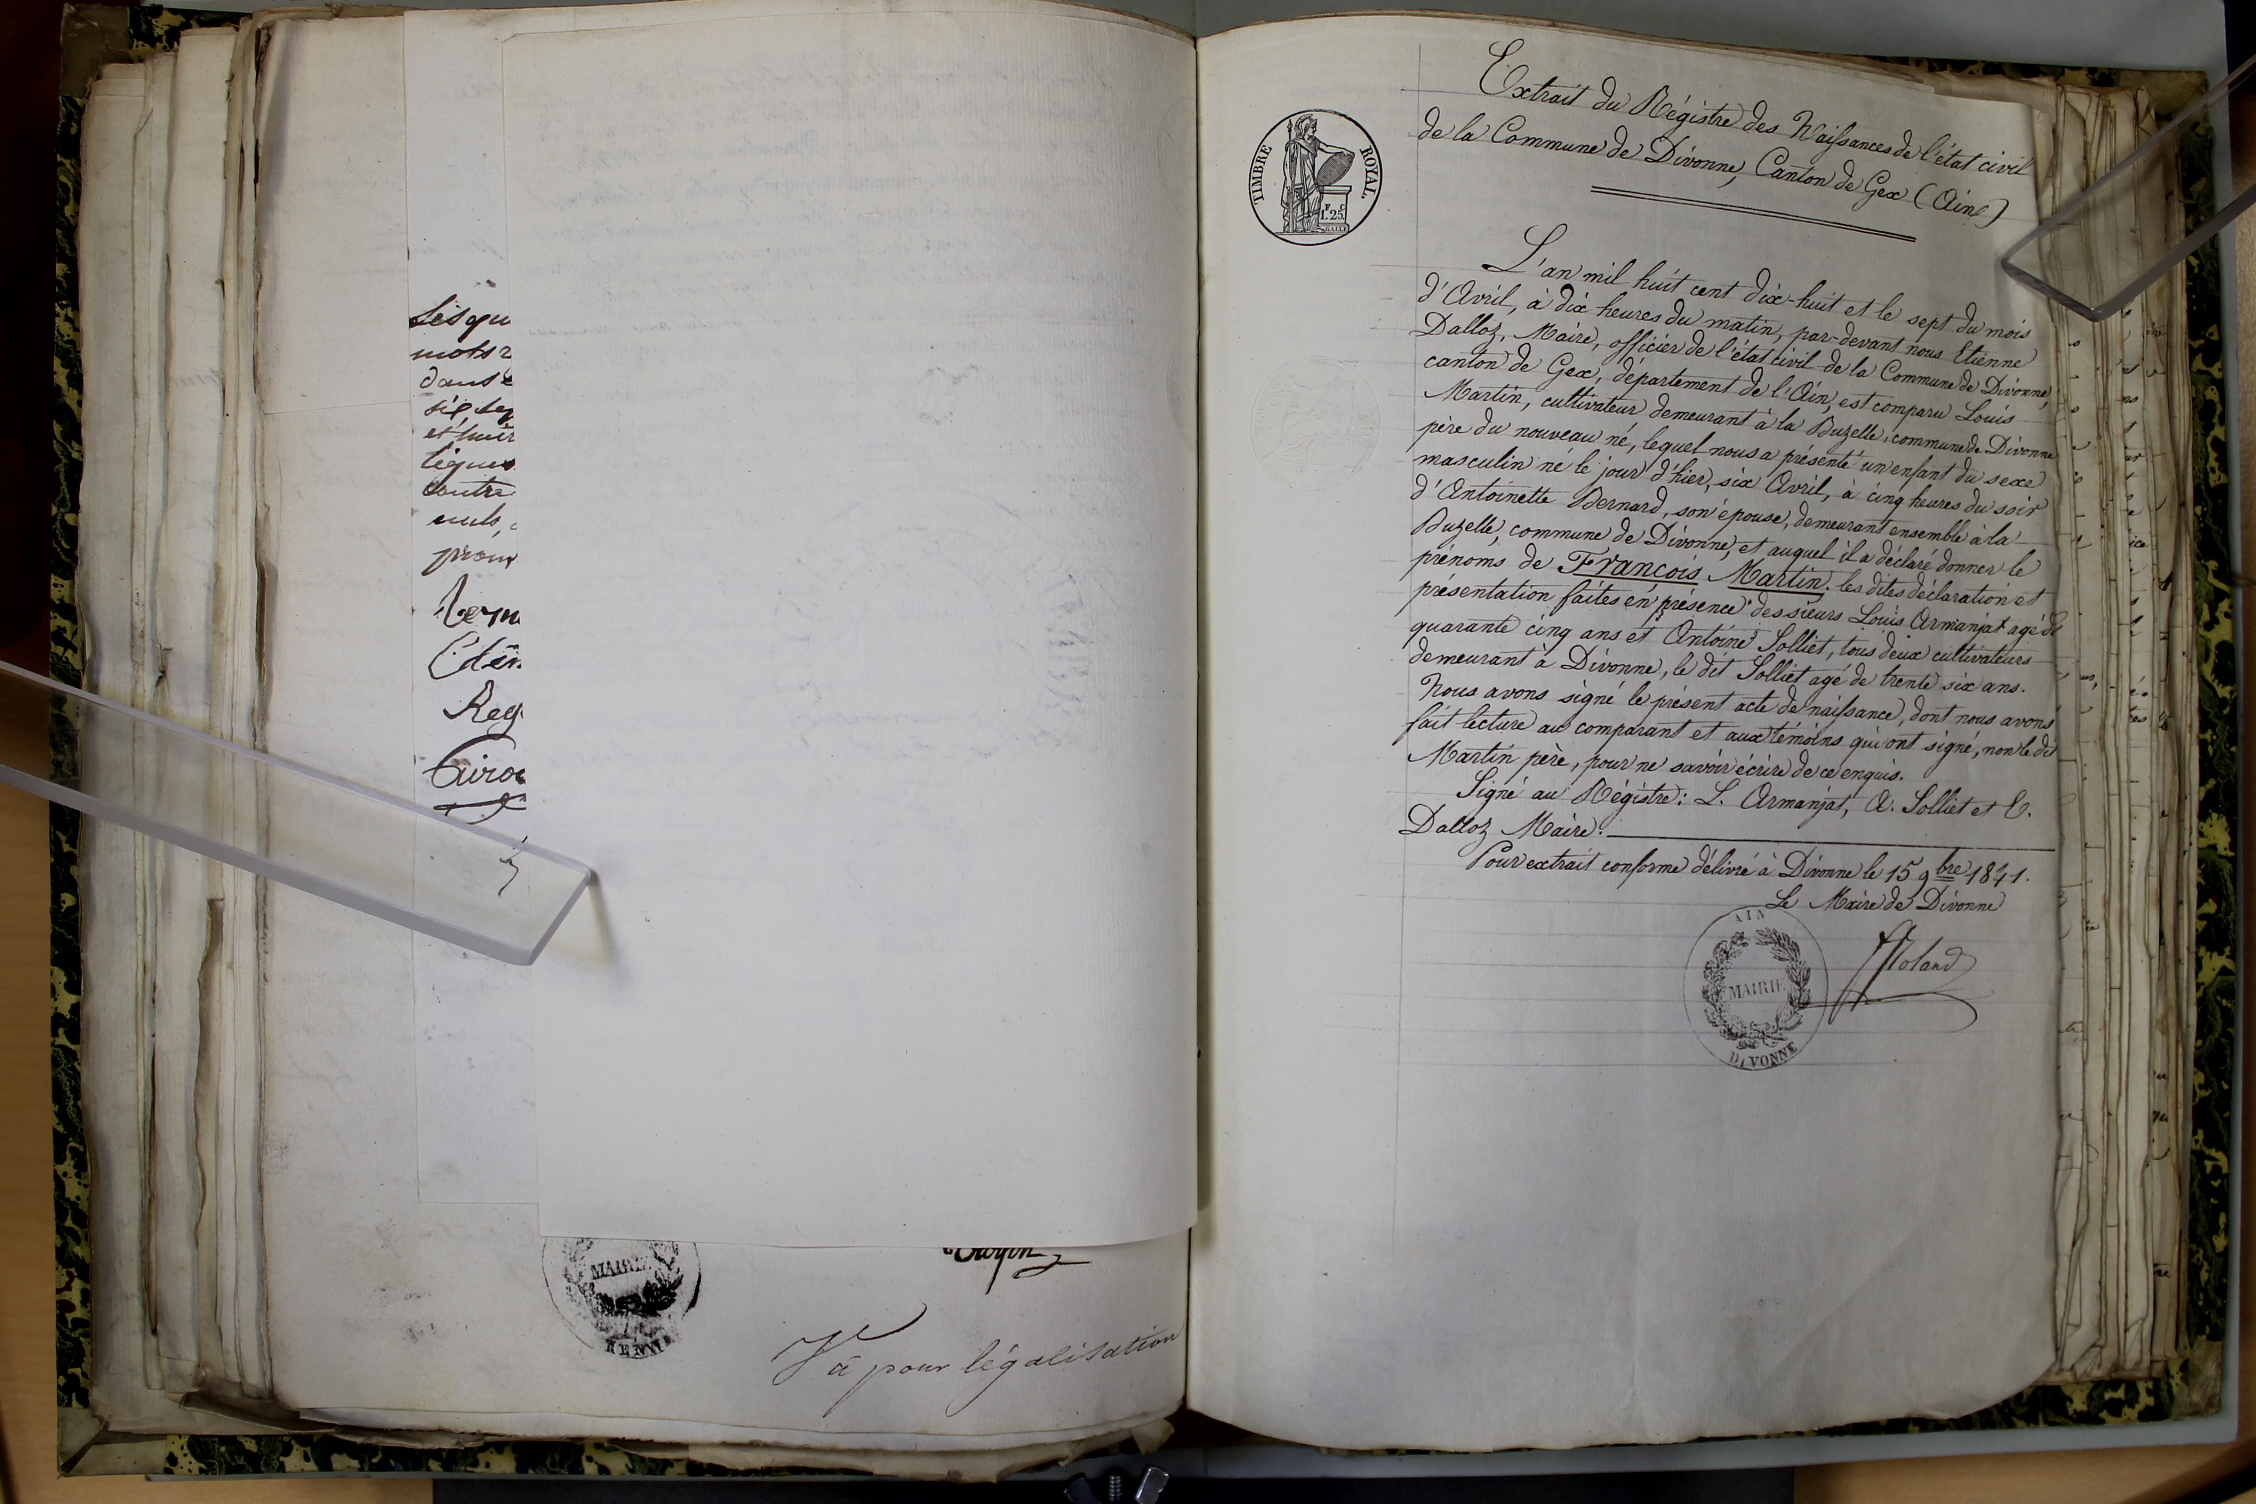 mots
dans
et huit
contre
nuls,
MAIRIE
Vû pour légalisation
TIMBRE ROYAL.
1.F 25.C
Extrait du Régistre des Naissances de l'état civil
de la Commune de Divonne, Canton de Gex (Ain)
L'an mil huit cent dix-huit et le sept du mois
d'Avril, à dix heures du matin, par-devant nous Etienne
Dalloz, Maire, officier de l'état civil de la Commune de Divonne,
canton de Gex, département de l'Ain, est comparu Louis
Martin, cultivateur demeurant à la Buzelle, commune de Divonne
père du nouveau né, lequel nous a présenté un enfant du sexe
masculin né le jour d'hier, six Avril, à cinq heures du soir
d'Antoinette Bernard, son épouse, demeurant ensemble à la
Buzelle, commune de Divonne, et auquel il a déclaré donner le
prénoms de François Martin. les dites déclaration et
présentation faites en présence des sieurs Louis Armanjat agé de
quarante cinq ans et Antoine Solliet, tous deux cultivateurs
demeurant à Divonne, le dit Solliet agé de trente six ans.
Nous avons signé le présent acte de naissance, dont nous avons
fait lecture au comparant et aux témoins qui ont signé, non le dit
Martin père, pour ne savoir écrire de ce enquis.
Signé au Régistre: L. Armanjat, A. Solliet et E.
Dalloz Maire.
Pour extrait conforme délivré à Divonne le 15 9bre 1841.
Le Maire de Divonne
AIN
MAIRIE
DIVONNE